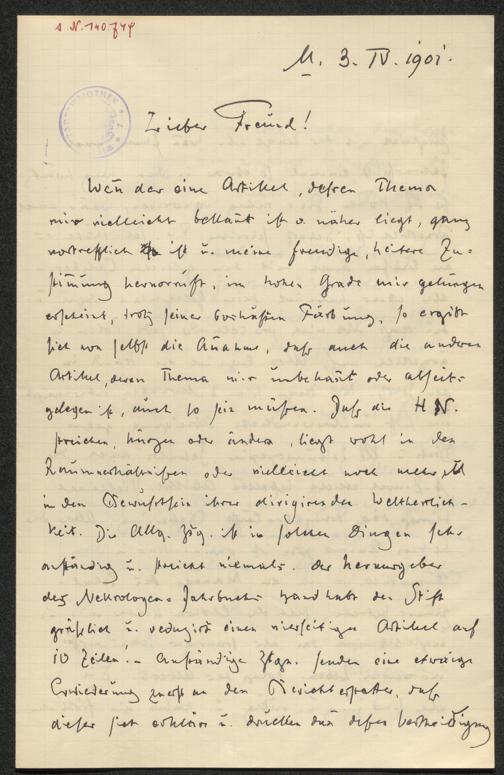 M. 3. IV. 1901.
Lieber Freund!
Wen̄ der eine Artikel, dessen Thema
mir vielleicht bekan̄t ist o. näher liegt, ganz
vortrefflich ist u. meine freudige, heitere Zu-
stim̄ung hervorruft, im hohen Grade mir gelungen
erscheint, trotz seiner boshaften Färbung, so ergibt
sich von selbst die An̄ahme, daß auch die anderen
Artikel, deren Thema mir unbekan̄t oder abseits
gelegen ist, auch so sein müssen. Daß die H N.
streichen, kürzen oder ändern, liegt wohl in den
Raumverhältnissen oder vielleicht noch mehr
in dem Bewußtsein ihrer dirigirenden Weltherrlich-
keit. Die Allg. Ztg. ist in solchen Dingen sehr
anständig u. streicht niemals. Der Herausgeber
des Nekrologen-Jahrbuchs handhabt den Stift
gräßlich u. reduzirt einen vielseitigen Artikel auf
10 Zeilen. – Anständige Ztgn. senden eine etwaige
Erwiederung zuerst an den Berichterstatter, daß
dieser sich erkläre u. drucken dan̄ dessen Vertheidigung